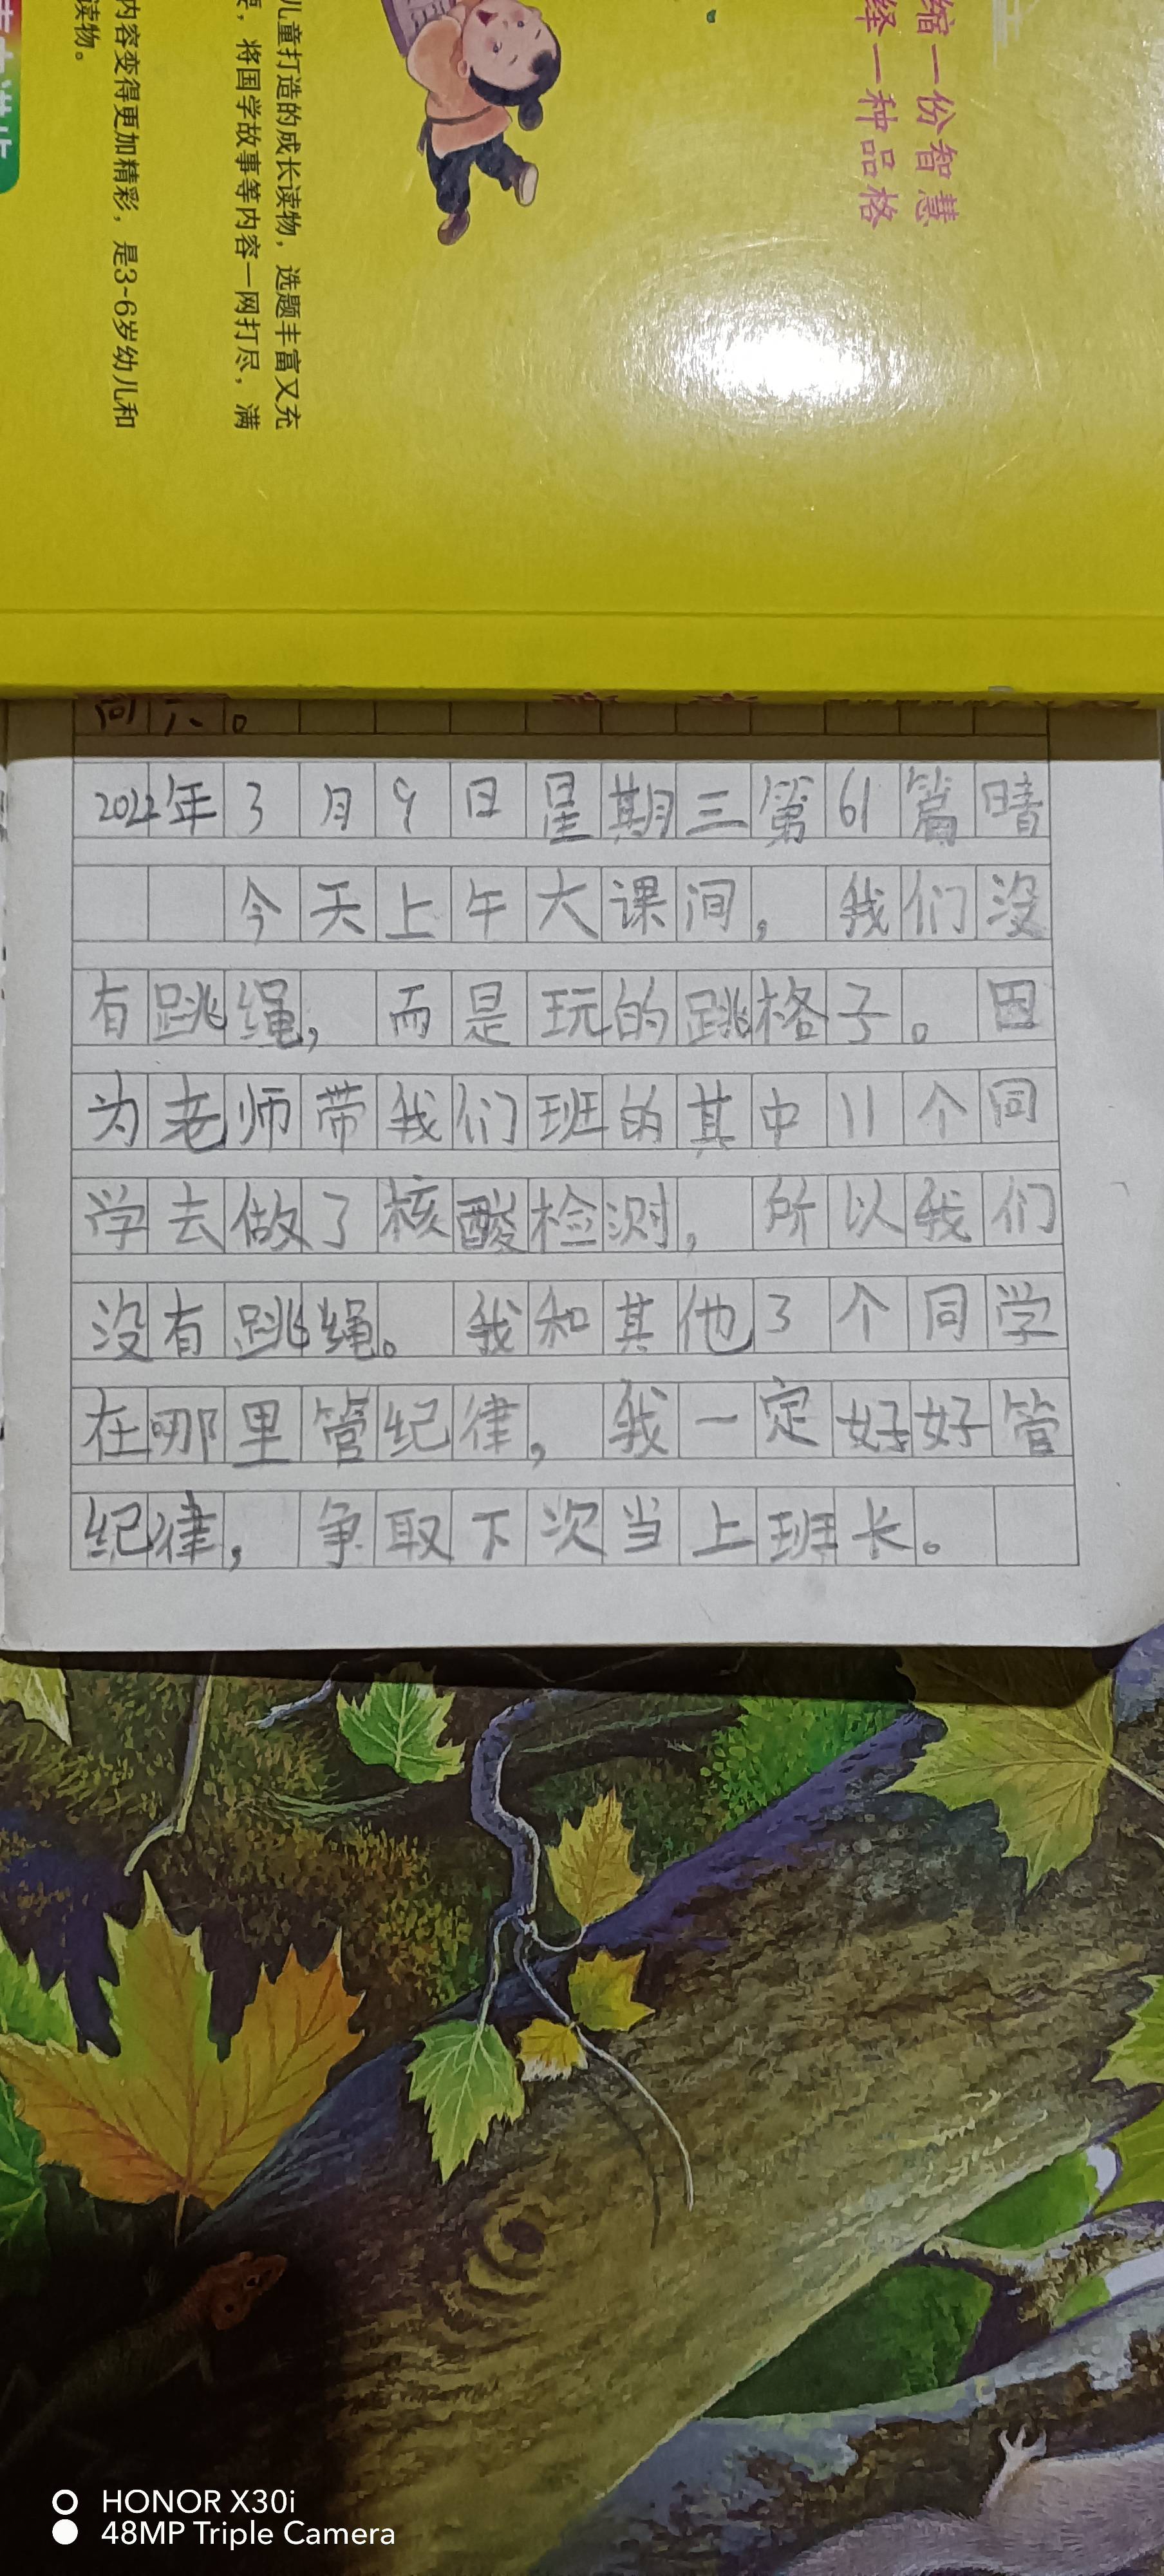 缩一份智慧
绎一种品格
儿童打造的成长读物，选题丰富又充
将国学故事等内容一网打尽，满
内容变得更加精彩，是3~6岁幼儿和
读物。
2022年3月9日星期三第61篇晴
今天上午大课间，我们没
有跳绳，而是玩的跳格子。因
为老师带我们班的其中11个同
学去做了核酸检测，所以我们
没有跳绳。我和其他3个同学
在哪里管纪律，我一定好好管
纪律，争取下次当上班长。
HONOR X30i
48MP Triple Camera